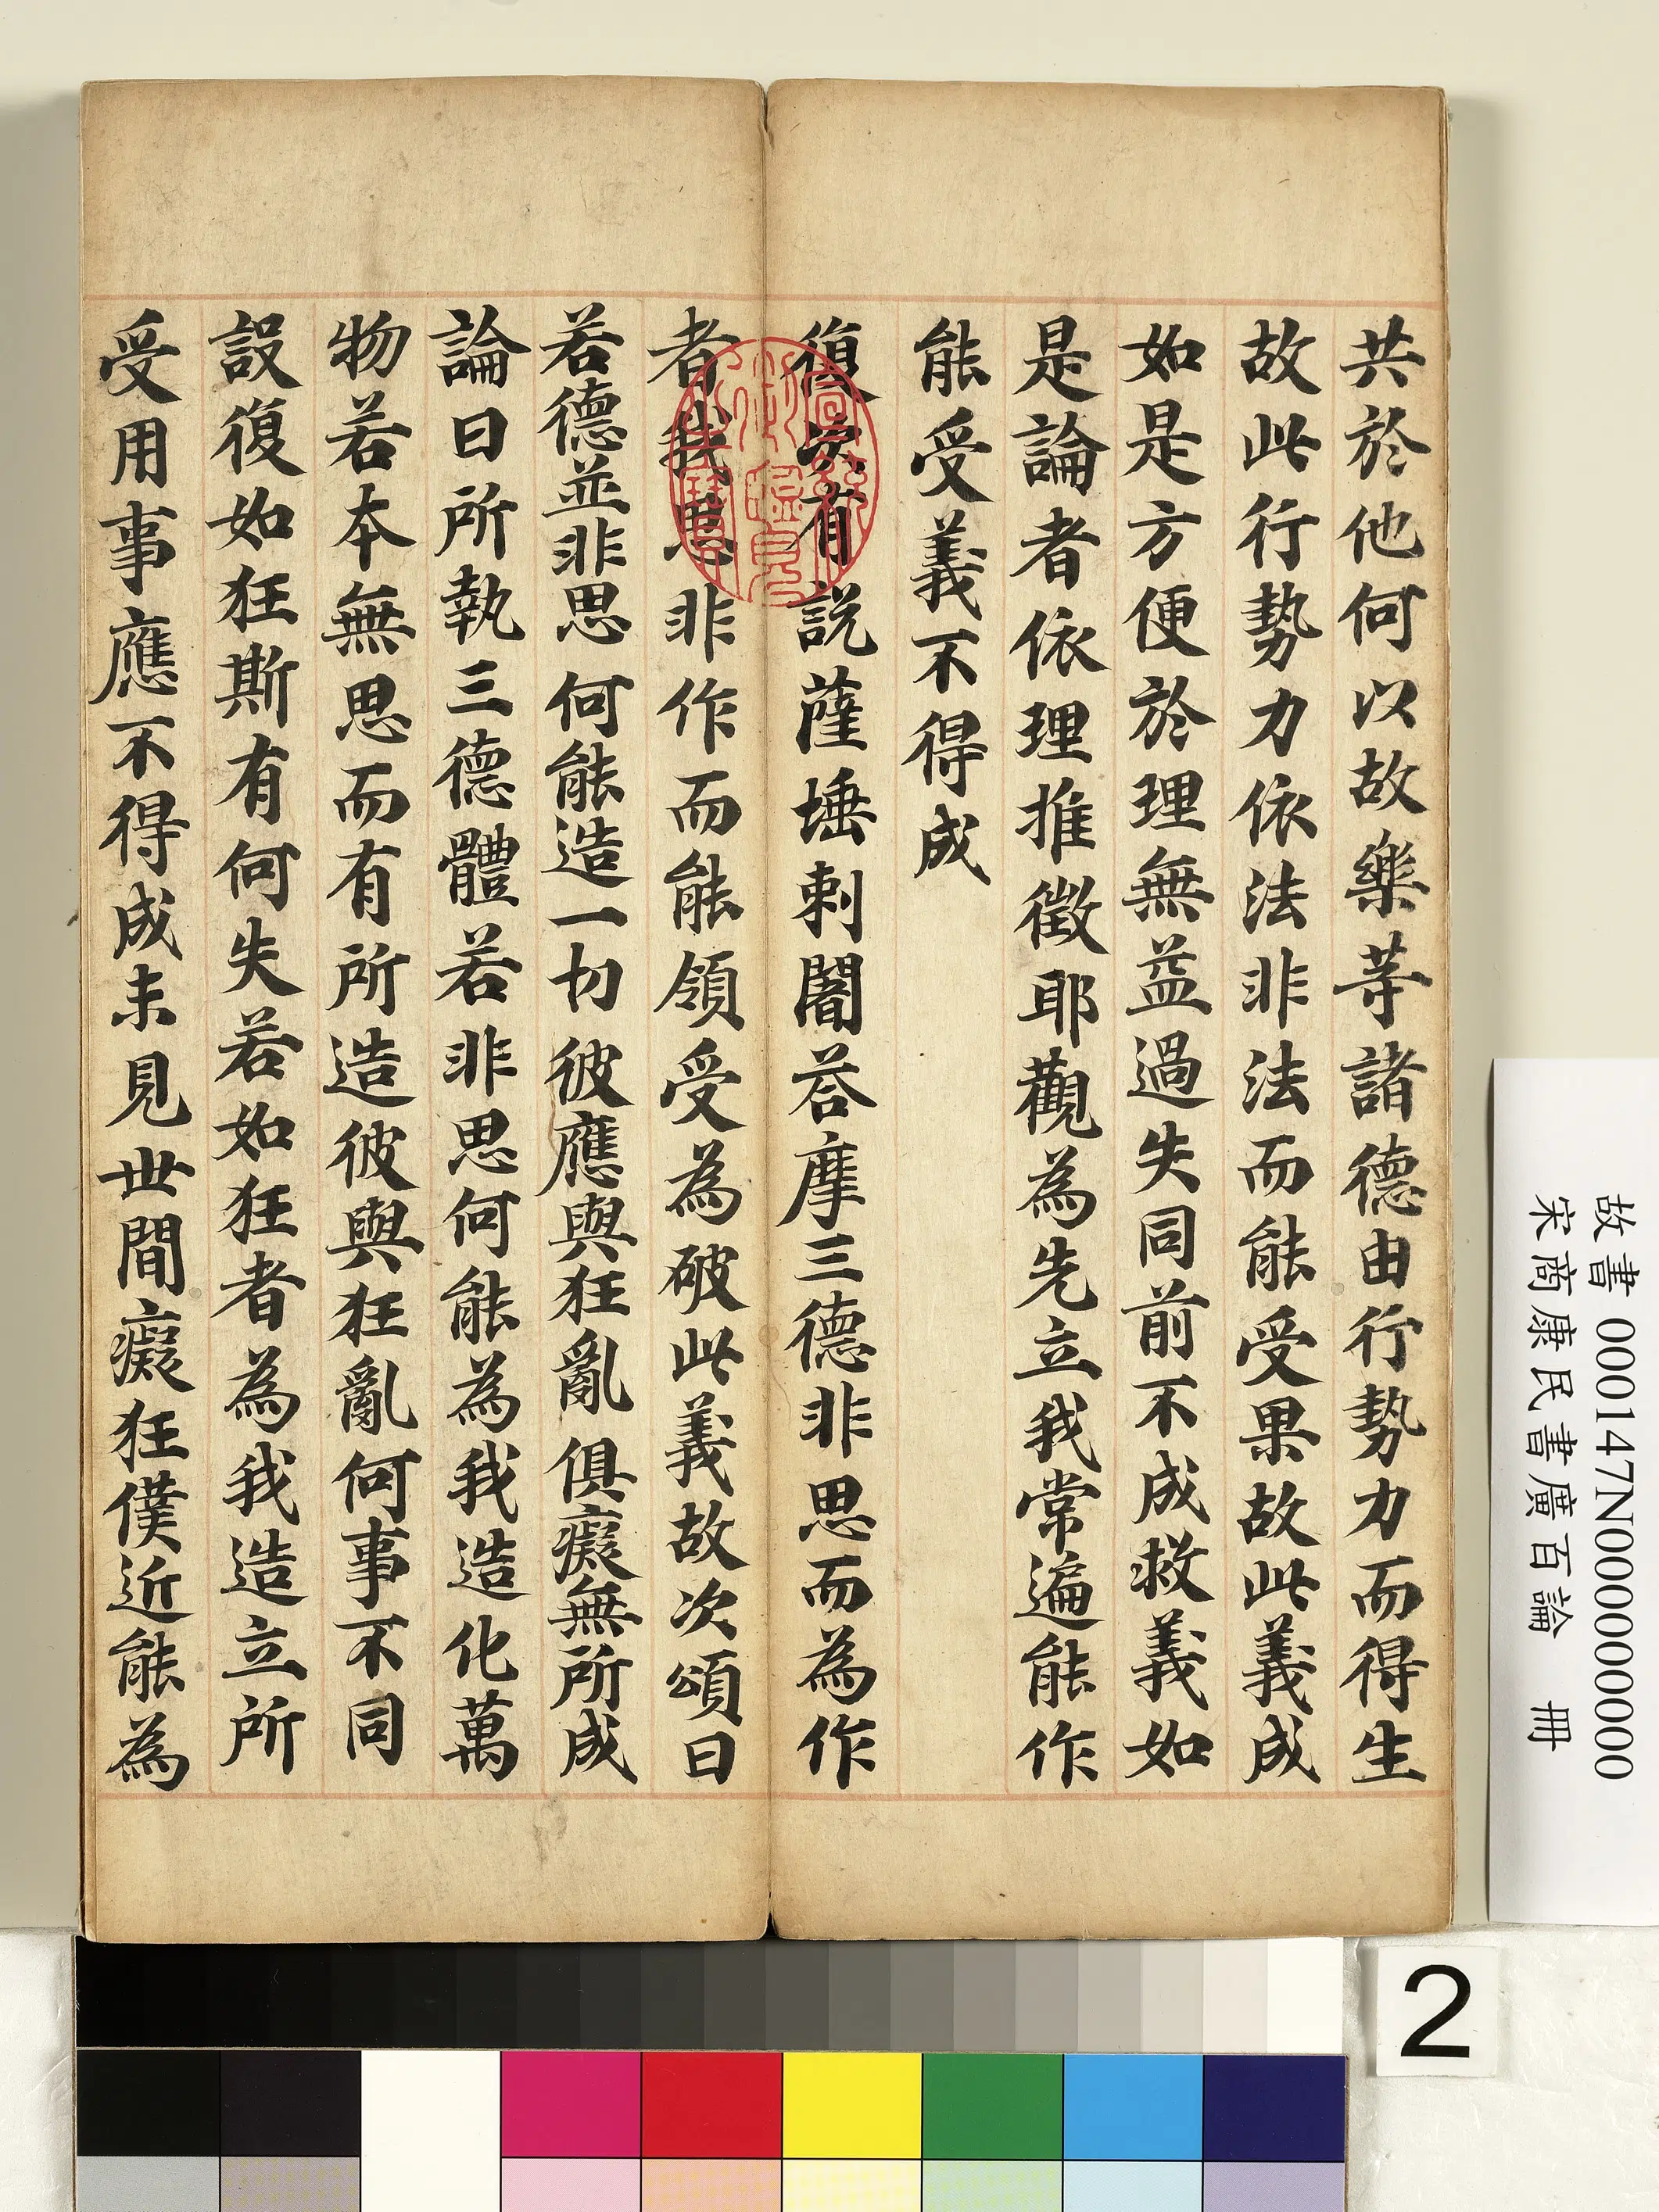 共於他何以故樂等諸德由行勢力而得生
故此行勢力依法非法而能受果故此義成
如是方便於理無益過失同前不成救義如
是論者依理推徵耶觀為先立我常遍能作
能受義不得成
復次有說薩埵剌闇荅摩三德非思而為作
者我思非作而能領受為破此義故次頌曰
若德並非思何能造一切彼應與狂亂俱癡無所成
論曰所執三德體若非思何能為我造化萬
物若本無思而有所造彼與狂亂何事不同
設復如狂斯有何失若如狂者為我造立所
受用事應不得成未見世間癡狂僕近能為
故書 000147N000000000
宋商康民書廣百論 冊
2